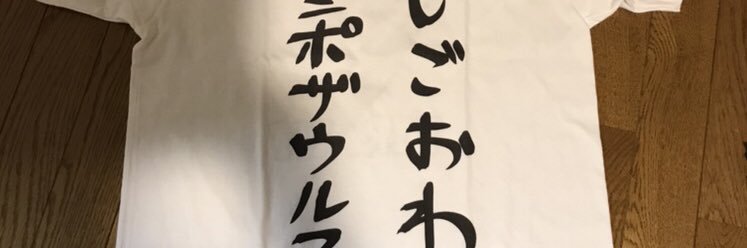 しごおわ
ポザウルス